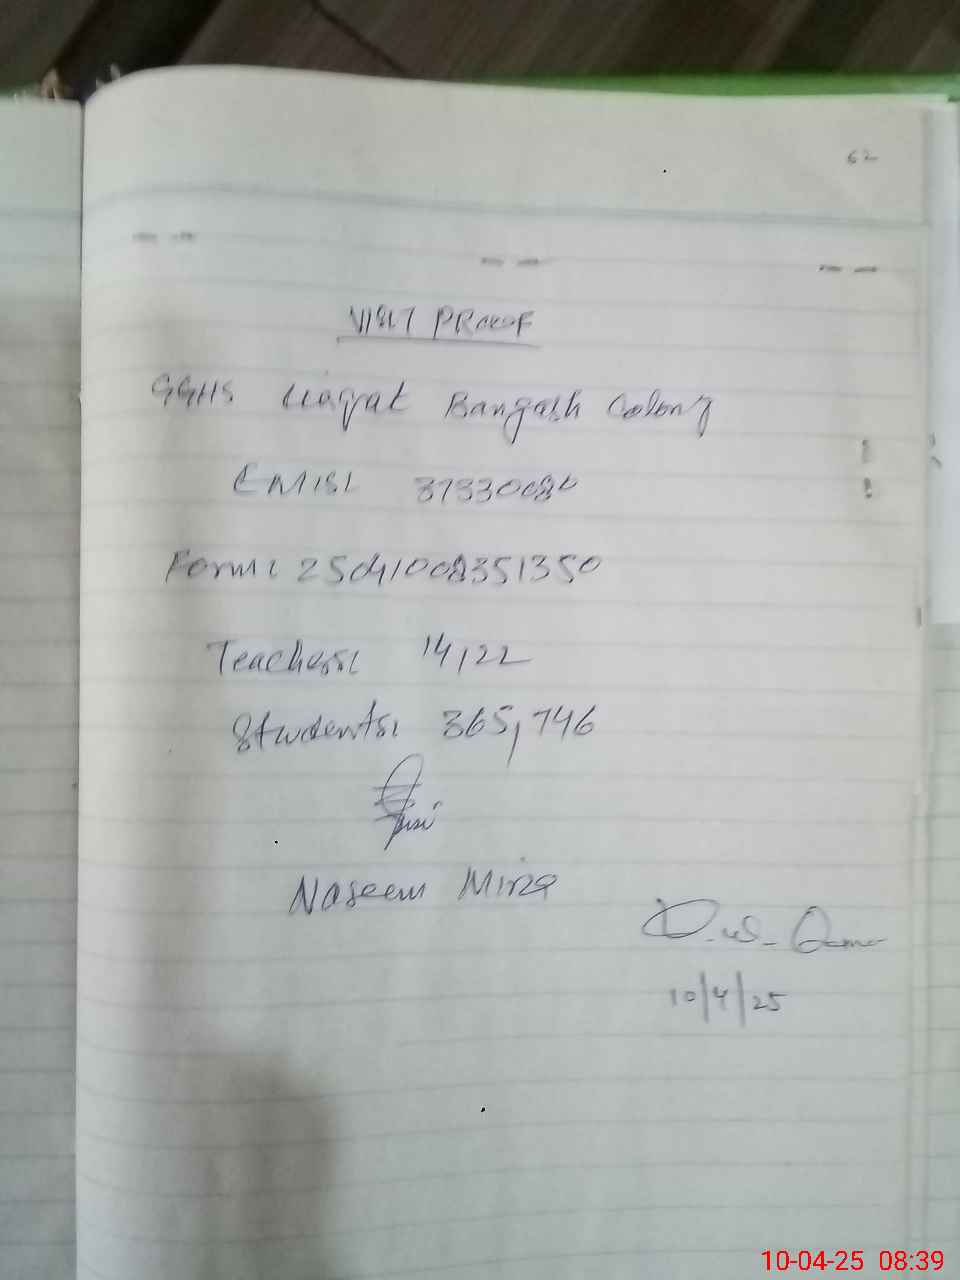 62
VISIT PROOF
GGHS Liaqat Bangash Colony
EMIS: 37330080
Form: 25041008351350
Teachers: 14,22
Students: 365,746
Naseem Mirza
10/4/25
10-04-25 08:39